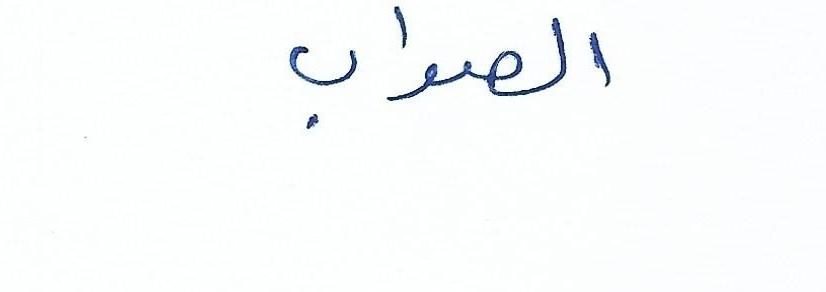 الصواب